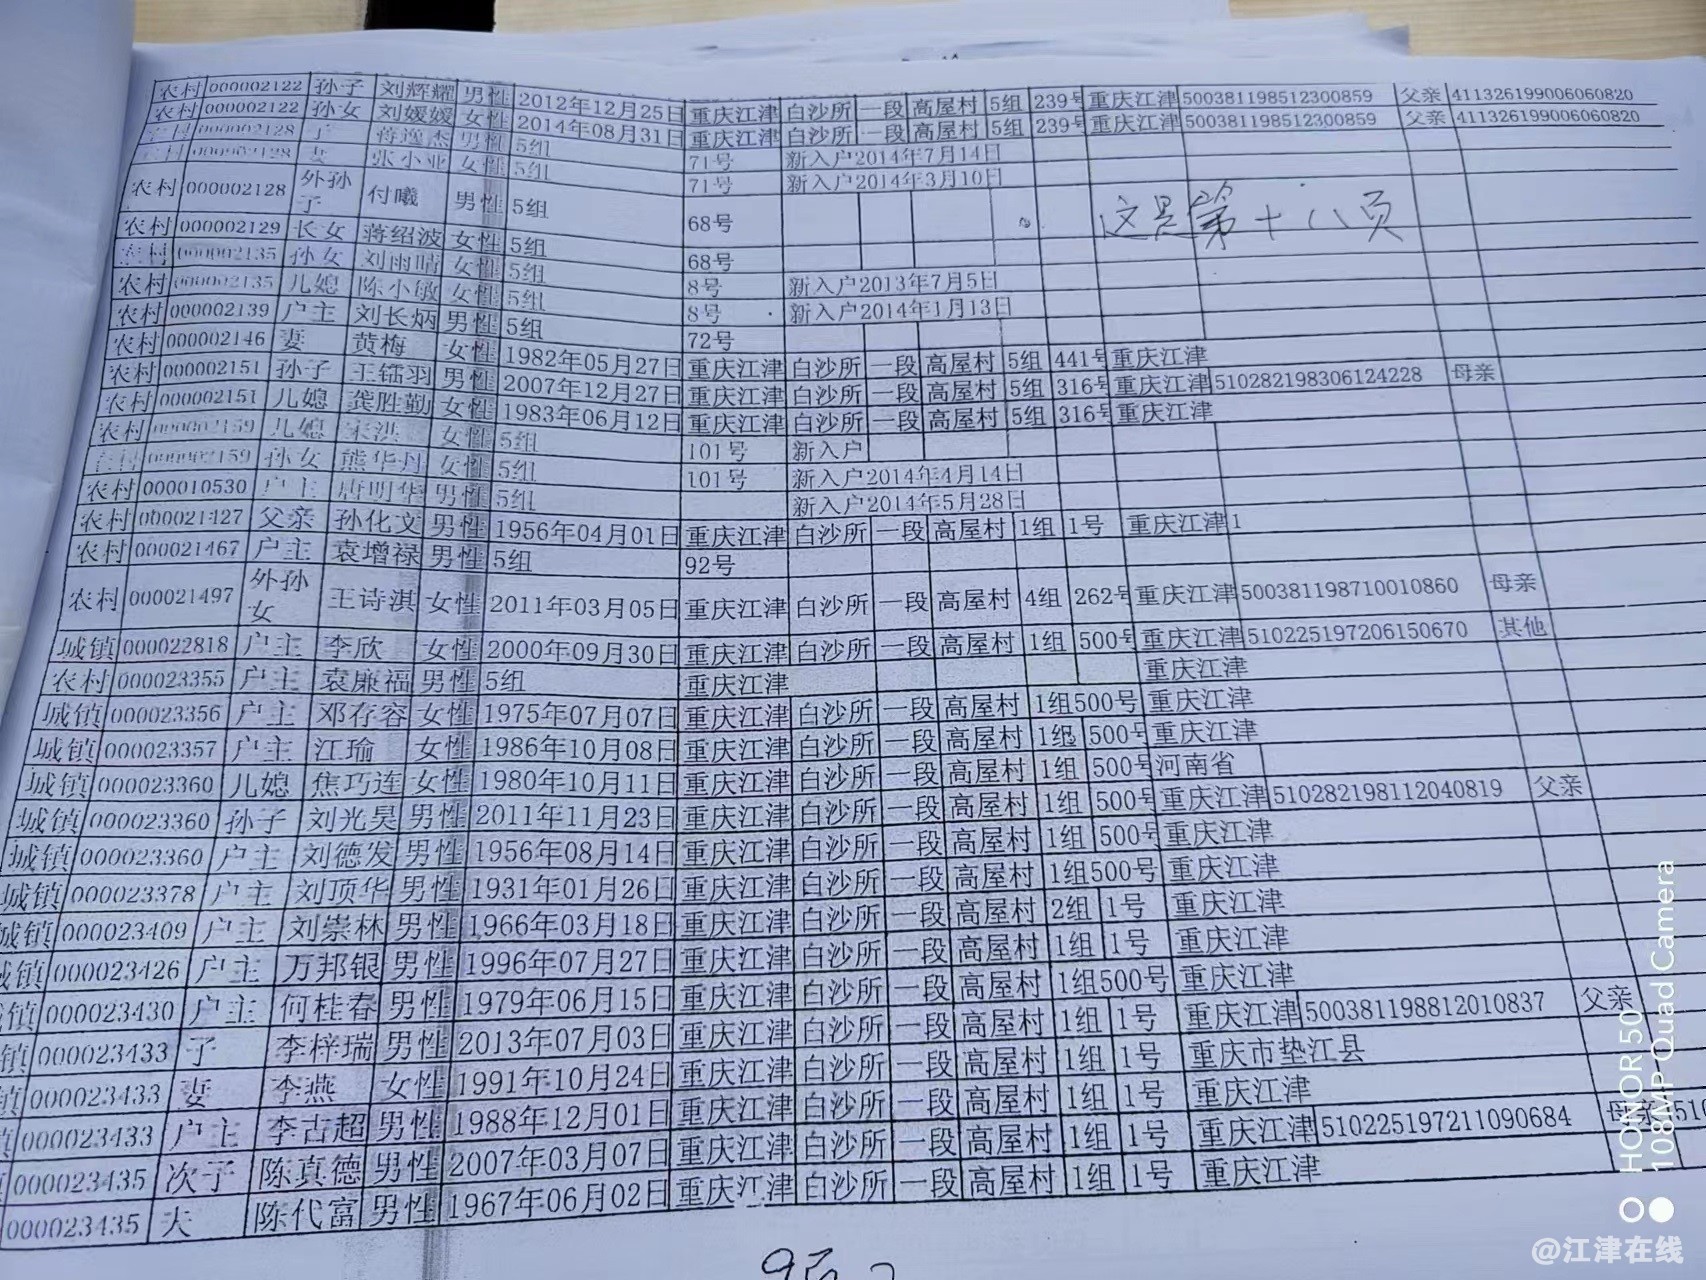 农村 000002122 孙子 刘辉耀 男性 2012年12月25日 重庆江津 白沙所 一段 高屋村 5组 239号 重庆江津 500381198512300859 父亲 411326199006060820
农村 000002122 孙女 刘媛媛 女性 2014年08月31日 重庆江津 白沙所 一段 高屋村 5组 239号 重庆江津 500381198512300859 父亲 411326199006060820
农村 000002128 子 蒋逸杰 男性 5组 71号 新入户2014年7月14日
农村 000002128 妻 张小亚 女性 5组 71号 新入户2014年3月10日
农村 000002128 外孙子 付曦 男性 5组 68号
这是第十八页
农村 000002129 长女 蒋绍波 女性 5组 68号
农村 000002135 孙女 刘雨晴 女性 5组 8号 新入户2013年7月5日
农村 000002135 儿媳 陈小敏 女性 5组 8号 新入户2014年1月13日
农村 000002139 户主 刘长炳 男性 5组 72号
农村 000002146 妻 黄梅 女性 1982年05月27日 重庆江津 白沙所 一段 高屋村 5组 441号 重庆江津
农村 000002151 孙子 王镭羽 男性 2007年12月27日 重庆江津 白沙所 一段 高屋村 5组 316号 重庆江津 510282198306124228 母亲
农村 000002151 儿媳 龚胜勤 女性 1983年06月12日 重庆江津 白沙所 一段 高屋村 5组 316号 重庆江津
农村 000002159 儿媳 宋洪 女性 5组 101号 新入户
农村 000002159 孙女 熊华丹 女性 5组 101号 新入户2014年4月14日
农村 000010530 户主 唐明华 男性 5组 新入户2014年5月28日
农村 000021427 父亲 孙化文 男性 1956年04月01日 重庆江津 白沙所 一段 高屋村 1组 1号 重庆江津 1
农村 000021467 户主 袁增禄 男性 5组 92号
农村 000021497 外孙女 王诗淇 女性 2011年03月05日 重庆江津 白沙所 一段 高屋村 4组 262号 重庆江津 500381198710010860 母亲
城镇 000022818 户主 李欣 女性 2000年09月30日 重庆江津 白沙所 一段 高屋村 1组 500号 重庆江津 510225197206150670 其他
农村 000023355 户主 袁廉福 男性 5组 重庆江津 重庆江津
城镇 000023356 户主 邓存容 女性 1975年07月07日 重庆江津 白沙所 一段 高屋村 1组 500号 重庆江津
城镇 000023357 户主 江瑜 女性 1986年10月08日 重庆江津 白沙所 一段 高屋村 1组 500号 重庆江津
城镇 000023360 儿媳 焦巧连 女性 1980年10月11日 重庆江津 白沙所 一段 高屋村 1组 500号 河南省
城镇 000023360 孙子 刘光昊 男性 2011年11月23日 重庆江津 白沙所 一段 高屋村 1组 500号 重庆江津 510282198112040819 父亲
城镇 000023360 户主 刘德发 男性 1956年08月14日 重庆江津 白沙所 一段 高屋村 1组 500号 重庆江津
城镇 000023378 户主 刘顶华 男性 1931年01月26日 重庆江津 白沙所 一段 高屋村 1组 500号 重庆江津
城镇 000023409 户主 刘崇林 男性 1966年03月18日 重庆江津 白沙所 一段 高屋村 2组 1号 重庆江津
城镇 000023426 户主 万邦银 男性 1996年07月27日 重庆江津 白沙所 一段 高屋村 1组 1号 重庆江津
镇 000023430 户主 何桂春 男性 1979年06月15日 重庆江津 白沙所 一段 高屋村 1组 500号 重庆江津
镇 000023433 子 李梓瑞 男性 2013年07月03日 重庆江津 白沙所 一段 高屋村 1组 1号 重庆江津 500381198812010837 父亲
镇 000023433 妻 李燕 女性 1991年10月24日 重庆江津 白沙所 一段 高屋村 1组 1号 重庆市垫江县
000023433 户主 李吉超 男性 1988年12月01日 重庆江津 白沙所 一段 高屋村 1组 1号 重庆江津
000023435 次子 陈真德 男性 2007年03月07日 重庆江津 白沙所 一段 高屋村 1组 1号 重庆江津 510225197211090684 母亲 510
000023435 夫 陈代富 男性 1967年06月02日 重庆江津 白沙所 一段 高屋村 1组 1号 重庆江津
HONOR 50
108MP Quad Camera
@江津在线